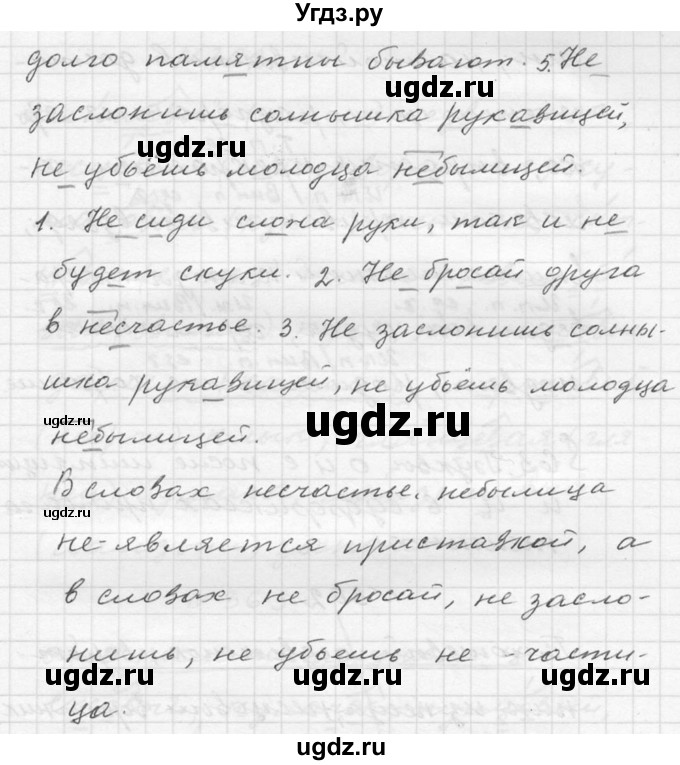 Угдз.ру
долго памятны бывают. 5. Не
ugdz.ru
заслонишь солнышка рукавицей,
ugdz.ru
не убьёшь молодца небылицей.
1. Не сиди сложа руки, так и не
будет скуки. 2. Не бросай друга
в несчастье. 3. Не заслонишь солны-
шка рукавицей, не убьёшь молодца
ugdz.ru ugdz.ru ugdz.ru
небылицей.
В словах несчастье, небылица
ugdz.ru
не-является приставкой, а
в словах не бросай, не засло-
нишь, не убьешь не - части-
ugdz.ru ugdz.ru ugdz.ru
ца.
ugdz.ru